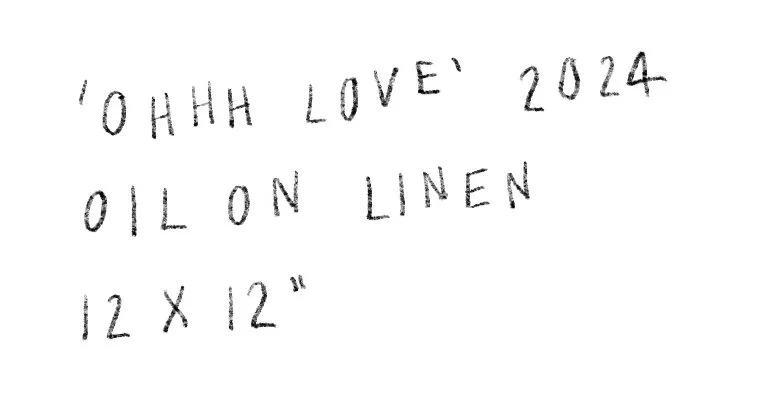 'OHHH LOVE' 2024
OIL ON LINEN
12 X 12"